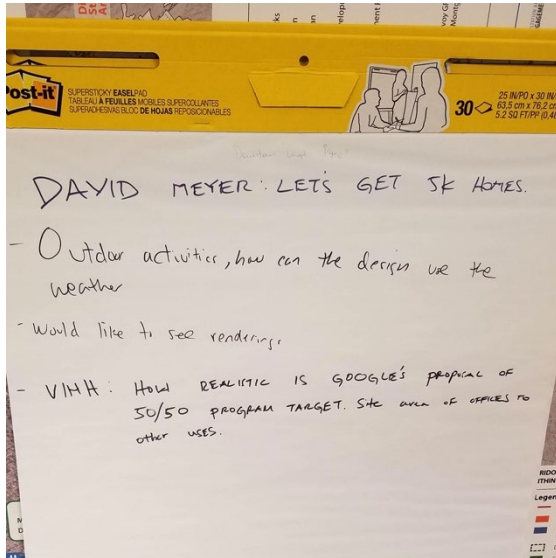 Post-it
SUPERSTICKY EASELPAD
TABLEAU À FEUILLES MOBILES SUPERCOLLANTES
SUPERADHESIVAS BLOC DE HOJAS REPOSICIONABLES
30
25 IN/PO x 30 IN/
63,5 cm x 76,2 cm
5.2 SQ FT/PP
DAVID MEYER: LET'S GET 5K HOMES.
- Outdoor activities, how can the design use the
weather
- Would like to see renderings
- VIHH: HOW REALISTIC IS GOOGLE'S PROPOSAL OF
50/50 PROGRAM TARGET. Site area of OFFICES TO
other USES.
Legen